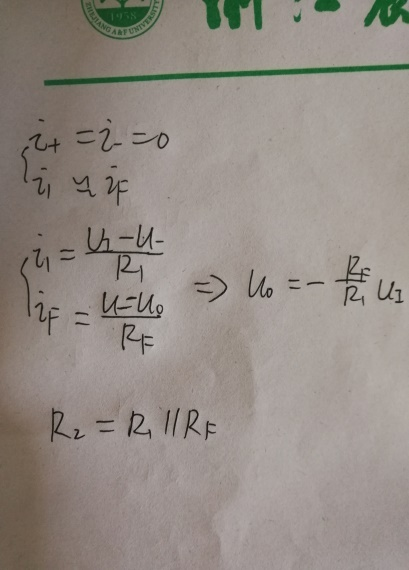 1958
ZHEJIANG A&F UNIVERSITY
浙江农
i₊ = i₋ = 0
i₁ ≈ i_F
i₁ = (u_I - u₋) / R₁
i_F = (u₋ - u₀) / R_F
⇒ u₀ = - (R_F / R₁) u_I
R₂ = R₁ // R_F